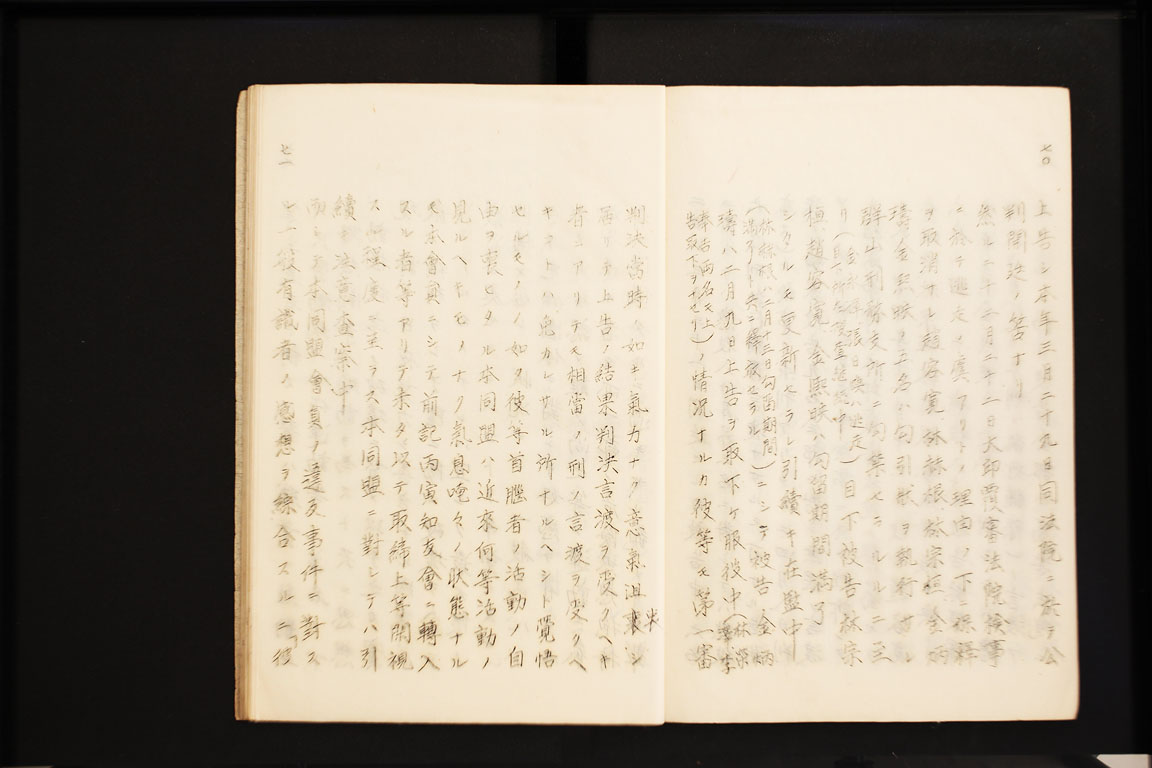 七〇
上告シ本年三月二十九日同法院ニ於テ公
判開廷ノ筈ナリ
然ルニ十二月二十二日大邱覆審法院検事
ニ於テ逃走ノ虞アリトノ理由ノ下ニ保釋
ヲ取消サレ趙容寛林榛根林宗桓金炳
璹金熙映ノ五名ハ勾引状ヲ執行サレ
群山刑務支所ニ勾禁セラルルニ至
リ(金 張日煥逃走)目下被告林宗
目下所在捜査継続中
桓趙容寛金熙映ハ勾留期間満了
シタルモ更新セラレ引續キ在監中
(林榛根ハ二月十三日勾留期間
満了ト共ニ釋放セラル)ニシテ被告金炳
璹ハ二月九日上告ヲ取下ケ服役中(林榮
春吉両名モ上
告取下ヲナセリ)ノ情況ナルカ彼等モ第一審
七一
判決當時ノ如キ氣力ナク意氣沮喪シ
居リテ上告ノ結果判決言渡ヲ受クヘキ
者ニアリテモ相當ノ刑ノ言渡ヲ受クヘ
キコトハ免カレサル所ナルヘシト覺悟
セルモノノ如ク彼等首腦者ノ活動ノ自
由ヲ喪ヒタル本同盟ハ近來何等活動ノ
見ルヘキモノナク氣息唵々ノ状態ナル
モ本會員ニシテ前記丙寅知友會ニ轉入
スル者等アリテ未タ以テ取締上等閑視
スル程度ニ至ラス本同盟ニ對シテハ引
續キ注意査察中
而シテ本同盟會員ノ違反事件ニ對ス
ル一般有識者ノ感想ヲ綜合スルニ「彼